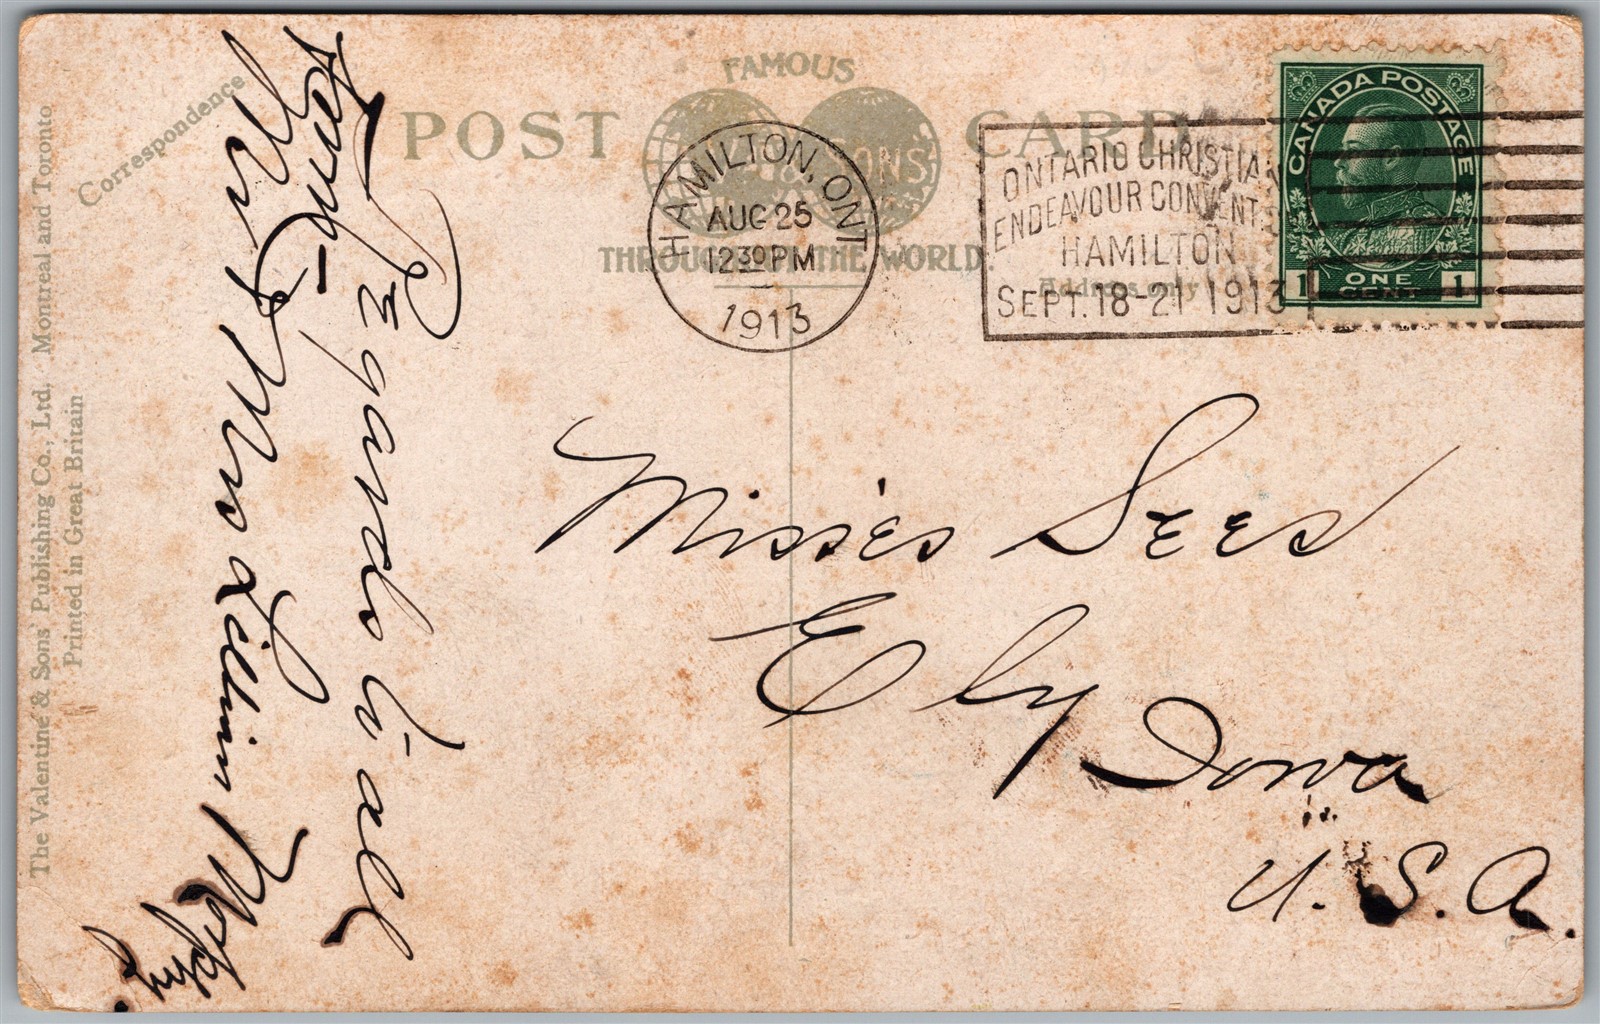 FAMOUS
POST CARD
VAL & SONS
THROUGHOUT THE WORLD
Correspondence
Address only
The Valentine & Sons' Publishing Co., Ltd. Montreal and Toronto
Printed in Great Britain
HAMILTON, ONT
AUG 25
12 30 PM
1913
ONTARIO CHRISTIAN
ENDEAVOUR CONVENT
HAMILTON
SEPT. 18-21 1913
CANADA POSTAGE
1 ONE CENT 1
Regards to all
from -
Mr & Mrs William
Misses Sees
Ely
Iowa
U. S. A.